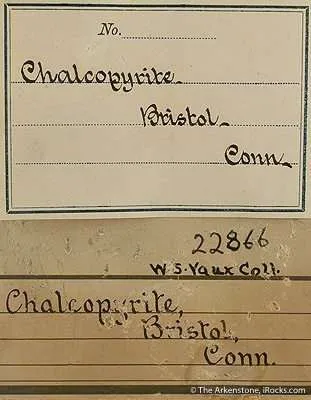 No.
Chalcopyrite
Bristol
Conn
22866
W S. Vaux Coll.
Chalcopyrite,
Bristol,
Conn.
© The Arkenstone, iRocks.com